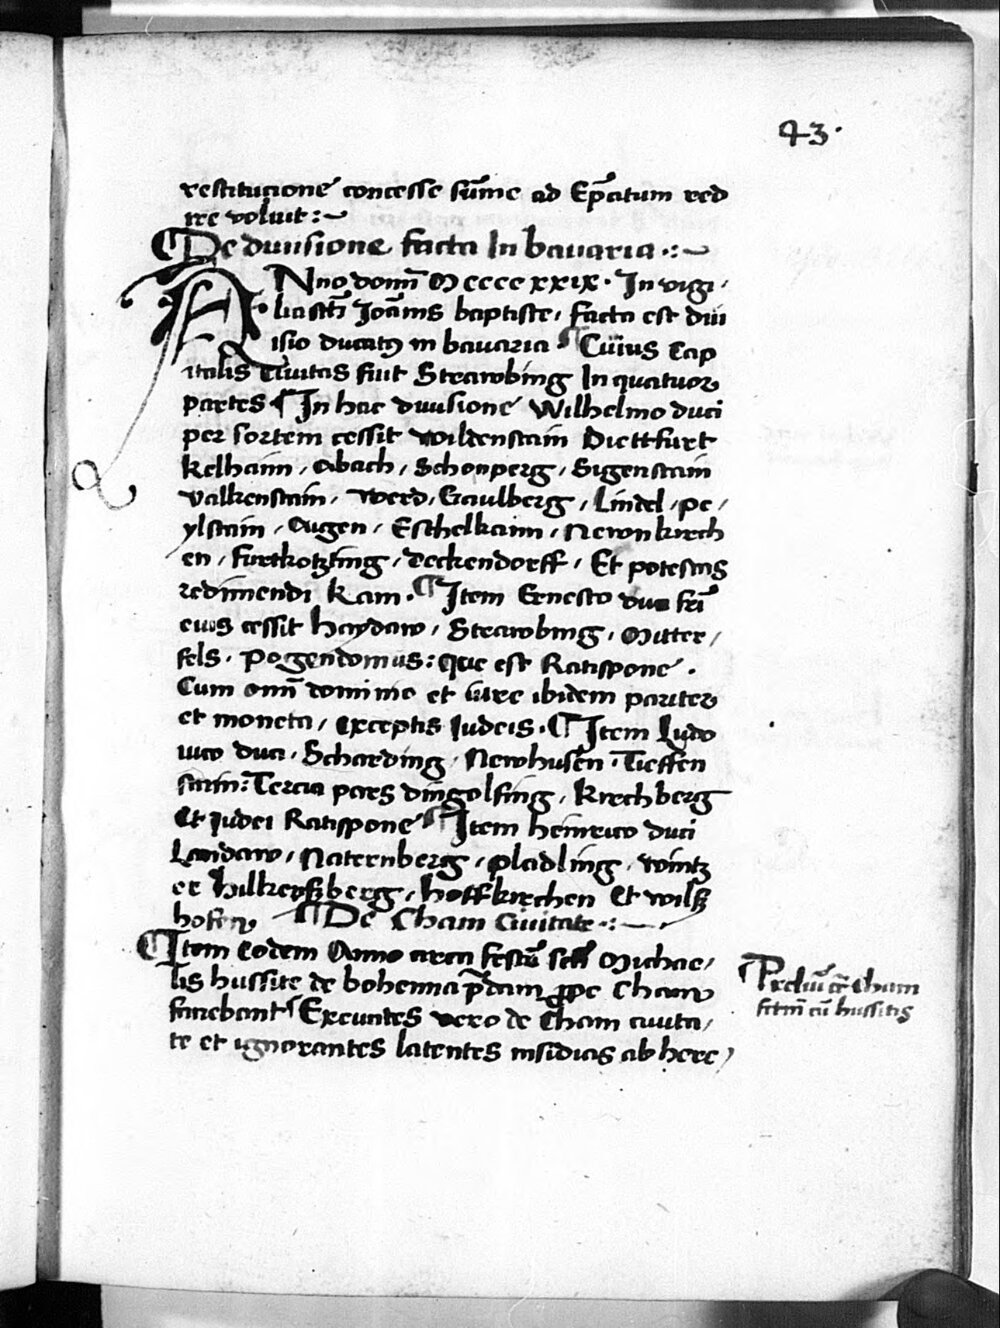 43.
restitucione concesse su̅me ad Ep̅atum red
ire voluit :~
¶ De diuisione facta In bauaria .:~
ANno domi̅ MCCCCXXIX. In vigi,
lia sct̅i Joa̅nis baptiste, facta est diui
isio ducatꝰ in bauaria ¶ Cuius Cap
italis Ciuitas fuit Strawbing In quatuor
partes ¶ In hac diuisione Wilhelmo duci
per sortem cessit Wildenstain Diettfurt
kelhaim, Abach, Schonperg, Sigenstain
Valkenstain, Werd, Gaulberg, Lindel, pe,
ylstain, Augen, Eschelkam, Newnkirch
en, furtkotzting, deckendorff, Et potestas
redimendi kam. ¶ Item Ernesto duci fr̅i
eius cessit haydaw, Strawbing, Mitter,
fels. pogendomus: que est Ratispone.
Cum omi̅ dominio et iure ibidem pariter
et moneta, exceptis Judeis. ¶ Item Ludo
uico duci, Scharding, Newhusen, Tieffen
stain: Tercia pars dingolfing, kirchberg
Et Judei Ratispone ¶ Item heinrico duci
Landaw, Naternberg, pladling, wintz
er hilkersperg, hoffkirchen Et wilsz
hofen, ¶ De Cham Ciuitate .:~
¶ Item Eodem Anno circa festu̅ sct̅i Michae,
lis hussite de bohemia p̅dam ꝓpe Cham
faciebant ¶ Exeuntes vero de Cham ciuita,
te et ignorantes latentes insidias ab here,
¶ Preliu̅ ci̅r Cham
fact̅m cu̅ hussitis